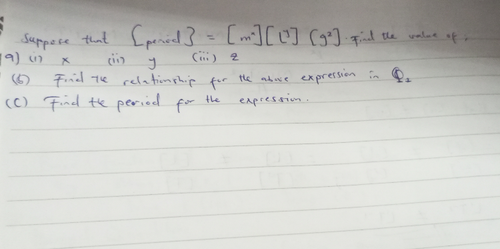 Suppose that [period] = [mˣ][lʸ][gᶻ]. Find the value of,
a) (i) x (ii) y (iii) z
(b) Find the relationship for the above expression in
(c) Find the period for the expression.